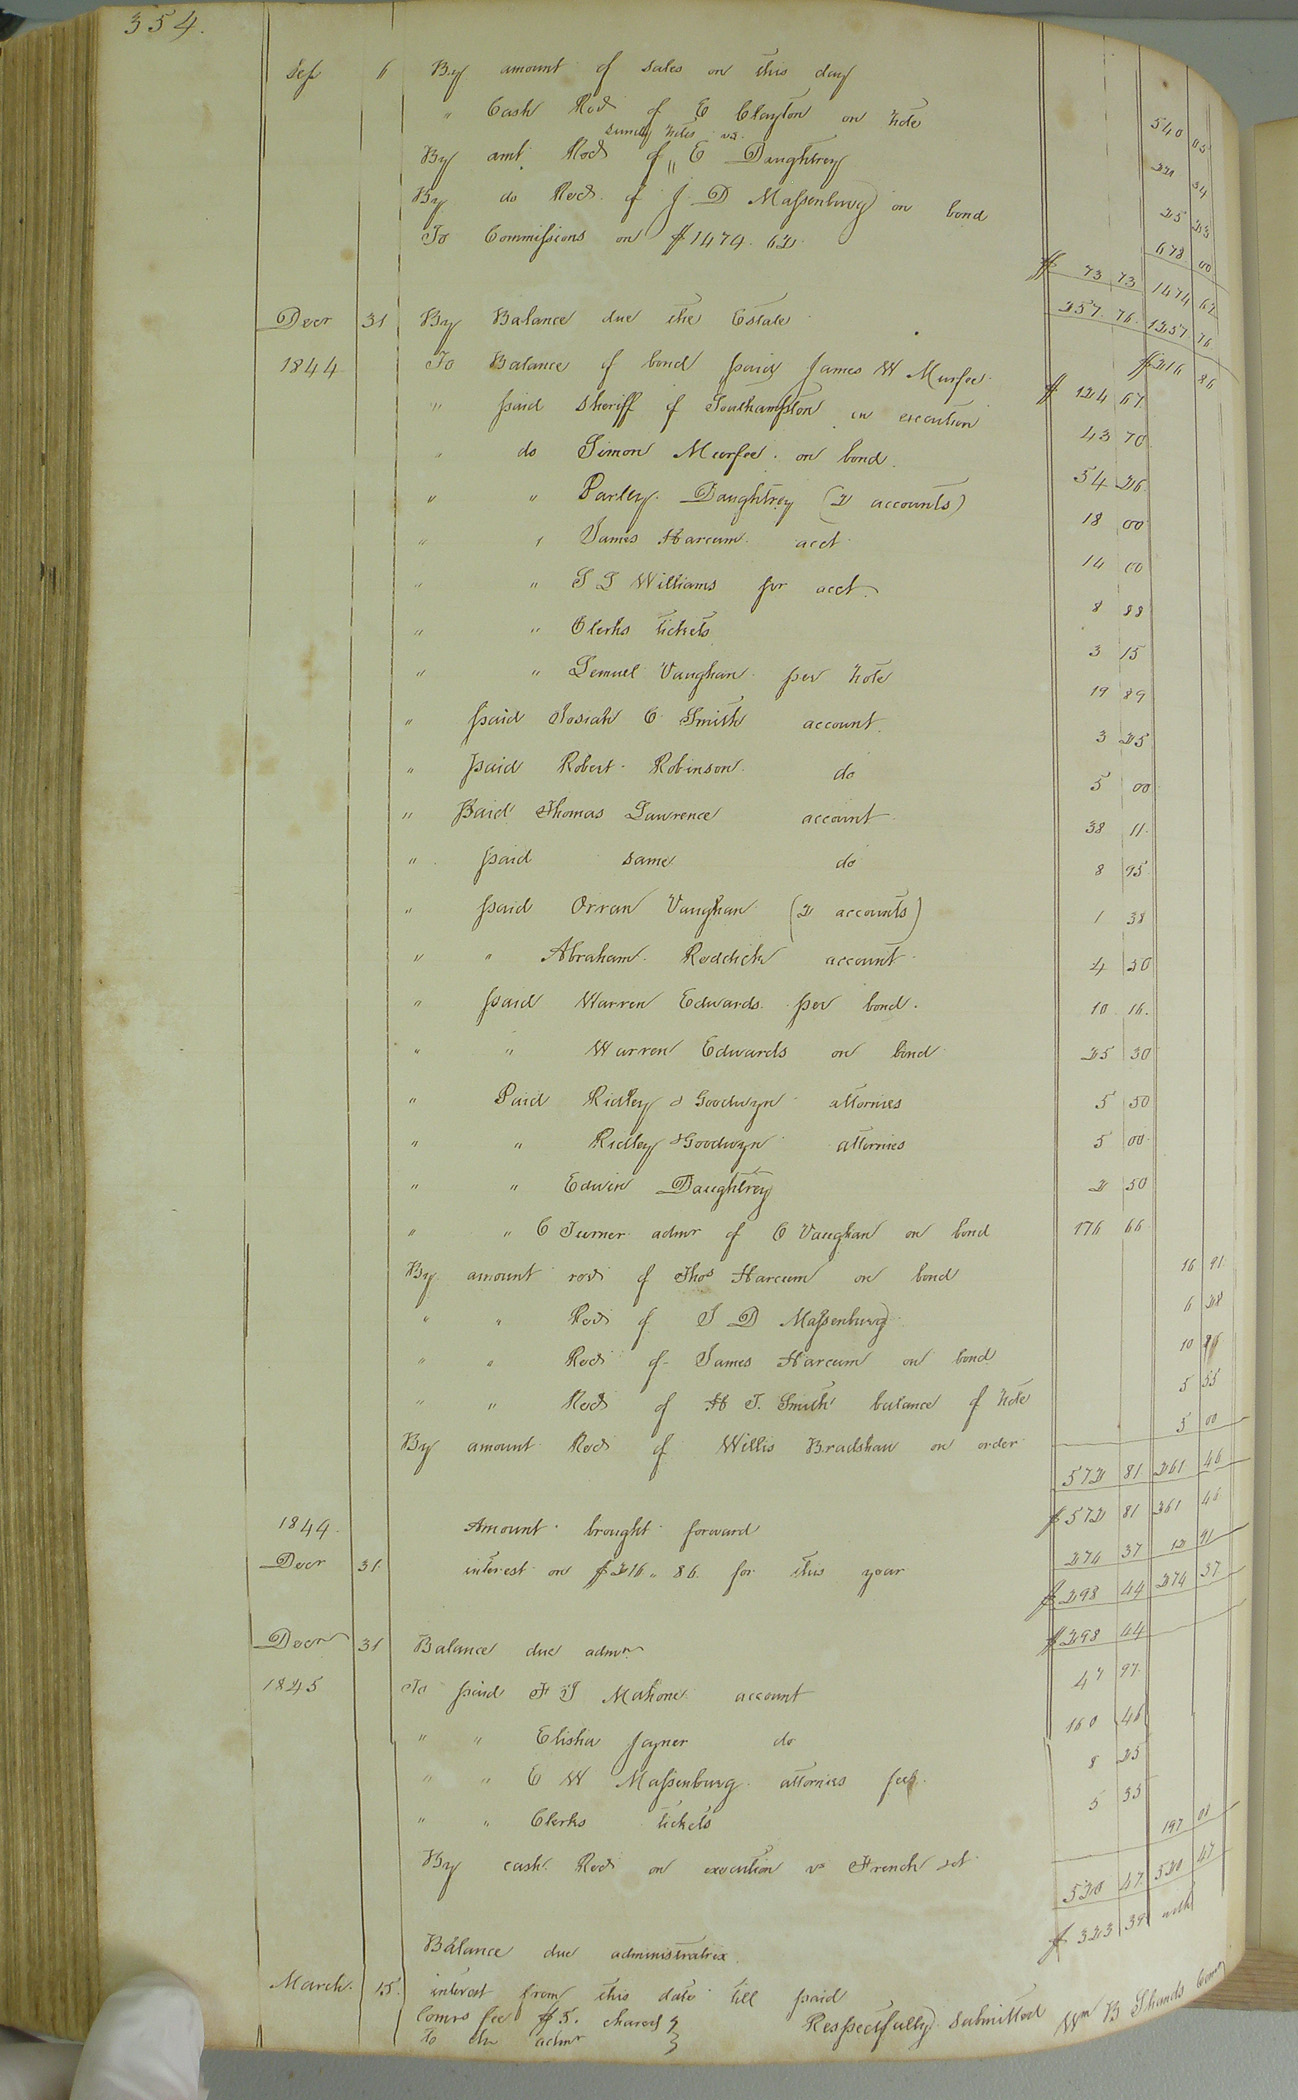 354.
Sep 6 By amount of sales on this day 540 05
" Cash Recd of E Clayton on note 34
sundry notes vs.
By amt. Recd of " E Daughtrey 25 23
By do Recd. of J. D Massenburg on bond 678 00
To Commissions on $1474. 62. $ 73 73 1474 62
257 76 1257 76
Decr 31 By Balance due the Estate $216 86
1844 To Balance of bond paid James W Murfee $ 124 67
" paid Sheriff of Southampton in execution 43 70
" do Simon Murfee. on bond 54 26
" " Parley. Daughtrey (2 accounts) 18 00
" " James Harcum. acct 14 00
" " S J Williams per acct. 8 88
" " Clerks tickets 3 15
" " Lemuel Vaughan per note 19 89
" paid Josiah C Smith account 3 25
" paid Robert Robinson do 5 00
" Paid Thomas Lawrence account 38 11
" paid same do 8 95
" paid Orran Vaughan (2 accounts) 1 38
" " Abraham. Reddick account 4 50
" paid Warren Edwards. per bond. 10 16
" " Warren Edwards on bond 25 30
" Paid Ridley & Goodwyn attornies 5 50
" " Ridley & Goodwyn attornies 5 00
" " Edwin Daughtrey 2 50
" " C Turner admr of C Vaughan on bond 176 66
By amount recd of Thos Harcum on bond 16 91
" " Recd of J D Massenburg 6 28
" " Recd of James Harcum on bond 10 86
" " Recd of H T. Smith balance of note 5 55
By amount Recd of Willis Bradshaw on order 5 00
572 81 261 46
1844. Amount brought forward $572 81 261 46
Decr 31 interest on $216 " 86 for this year 274 37 12 91
$298 44 274 37
Decr 31 Balance due admr $298 44
1845 To paid F J Mahone account 47 97
" " Elisha Joyner do 160 46
" " E W Massenburg attornies fees. 8 25
" " Clerks tickets 5 35
By cash Recd on execution vs French set 197 08
520 47 520 47
Balance due administratrix $ 323 39 with
March. 15. interest from this date till paid
Comrs fee $5. chared }
to the admr }
Respectfully Submitted Wm B Shands Comr